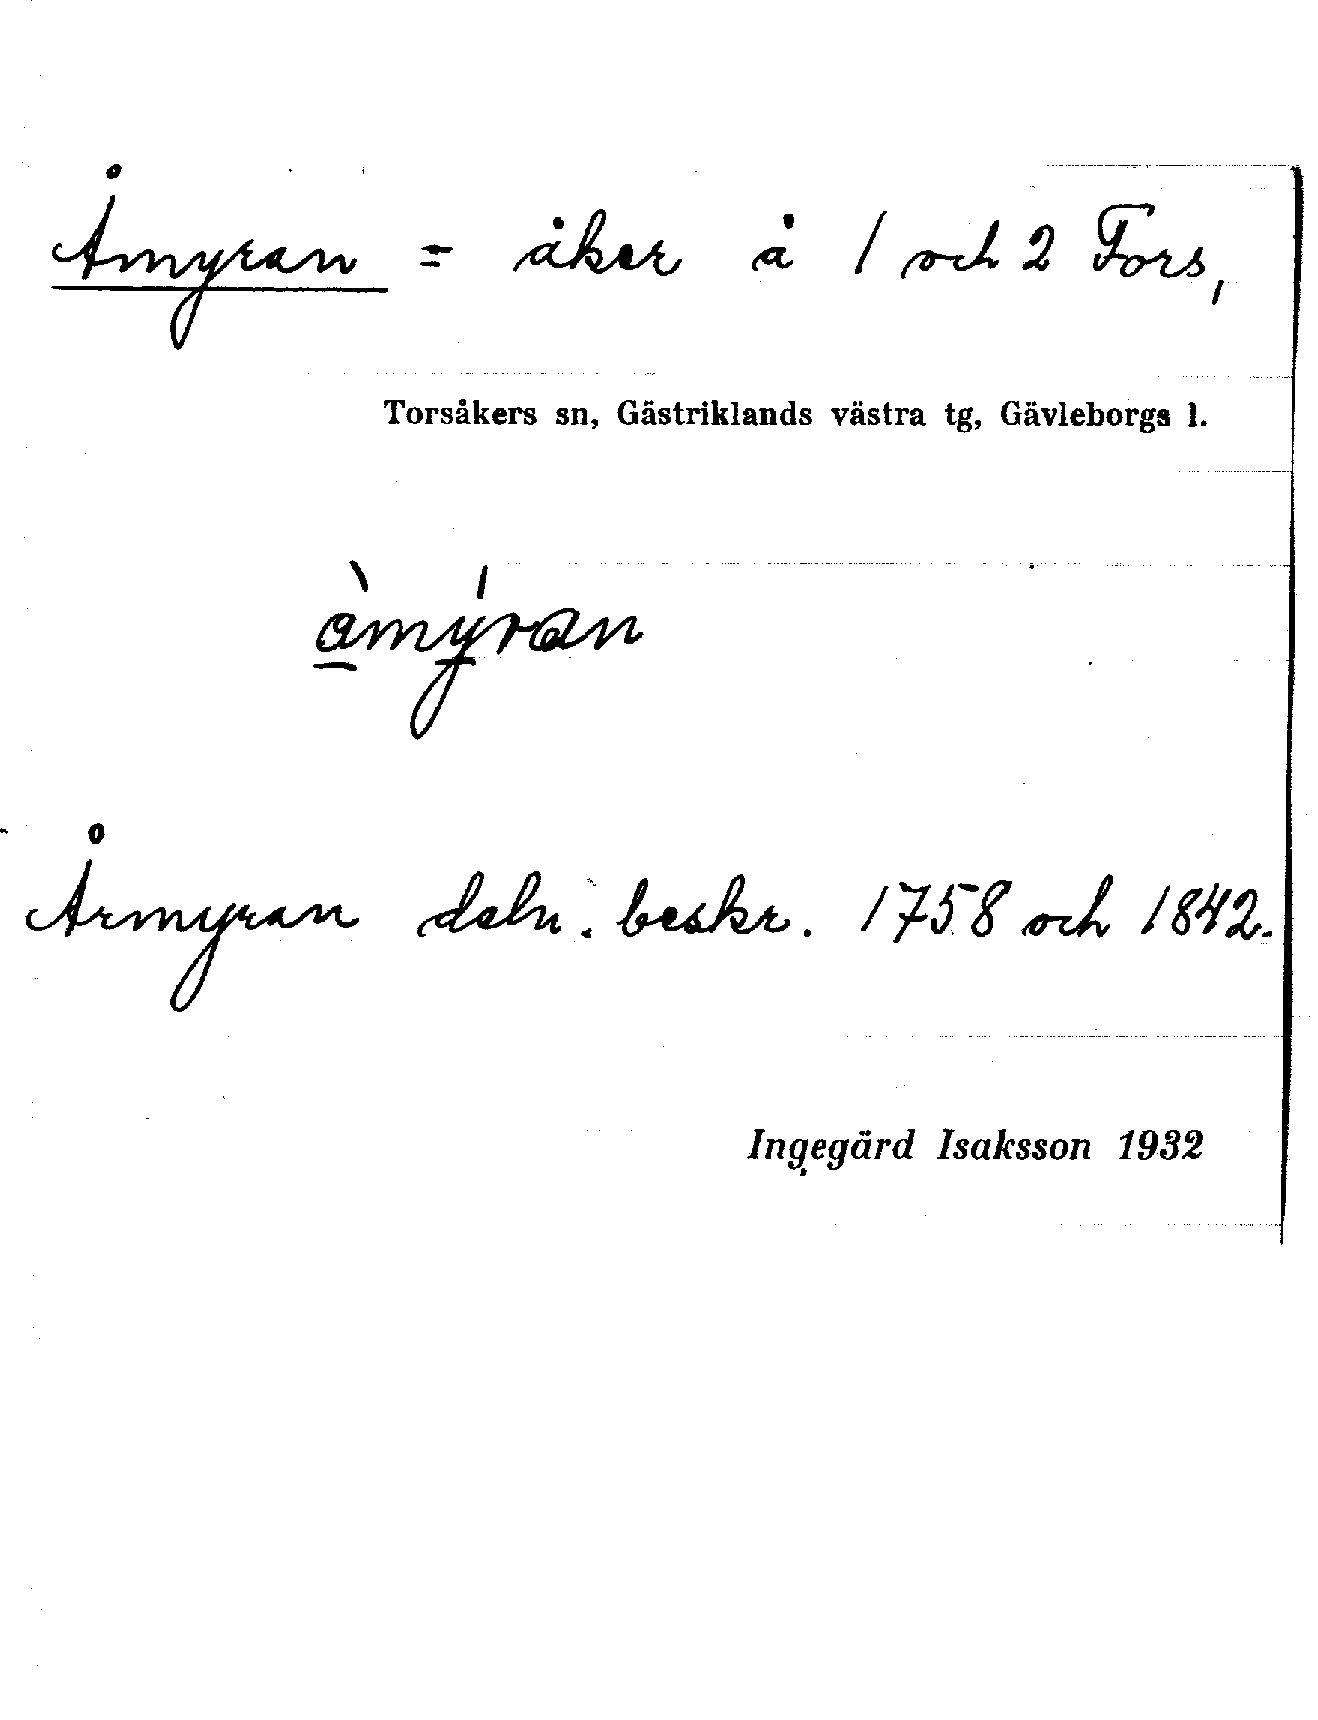 Åmyran = åker å 1 och 2 Fors,
Torsåkers sn, Gästriklands västra tg, Gävleborgs l.
àmýran
Årmyran deln. beskr. 1758 och 1842.
Ingegärd Isaksson 1932